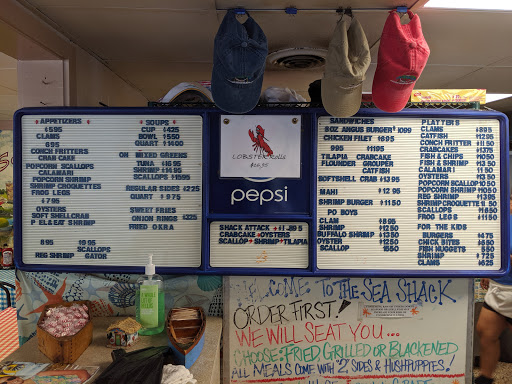 APPETIZERS
$595
CLAMS
695
CONCH FRITTERS
CRAB CAKE
POPCORN SCALLOPS
CALAMARI
POPCORN SHRIMP
SHRIMP CROQUETTES
FROG LEGS
$795
OYSTERS
SOFT SHELL CRAB
PEEL & EAT SHRIMP
895 $995
SCALLOPS
REG SHRIMP GATOR
SOUPS
CUP $425
BOWL $550
QUART $1400
ON MIXED GREENS
TUNA $1695
SHRIMP $1495
SCALLOPS $1595
REGULAR SIDES $225
QUART $975
SWEET FRIES
ONION RINGS $325
FRIED OKRA
LOBSTER ROLLS
pepsi
SHACK ATTACK $1895
CRABCAKE OYSTERS
SCALLOP SHRIMP TILAPIA
SANDWICHES
8OZ ANGUS BURGER 1099
CHICKEN FILET $695
995 $1195
TILAPIA CRABCAKE
FLOUNDER GROUPER
CATFISH
SOFTSHELL CRAB $1395
MAHI $1295
SHRIMP BURGER $1150
PO BOYS
CLAM $895
SHRIMP $1250
BUFFALO SHRIMP $1350
OYSTER $1250
SCALLOP $1550
PLATTERS
CLAMS $895
CATFISH $1295
CONCH FRITTER $1150
CRABCAKES $1375
FISH & CHIPS $1050
FISH & SHRIMP $1350
CALAMARI $1150
OYSTERS
POPCORN SCALLOP $1050
POPCORN SHRIMP $1050
SHRIMP CROQUETTE $1150
SCALLOPS $1650
FROG LEGS $1150
FOR THE KIDS
BURGERS $475
CHICK BITES $650
FISH NUGGETS $550
SHRIMP $725
CLAMS $625
WELCOME TO THE SEA SHACK
ORDER FIRST!
WE WILL SEAT YOU...
CHOOSE: FRIED, GRILLED OR BLACKENED
ALL MEALS COME WITH "2" SIDES & HUSHPUPPIES!